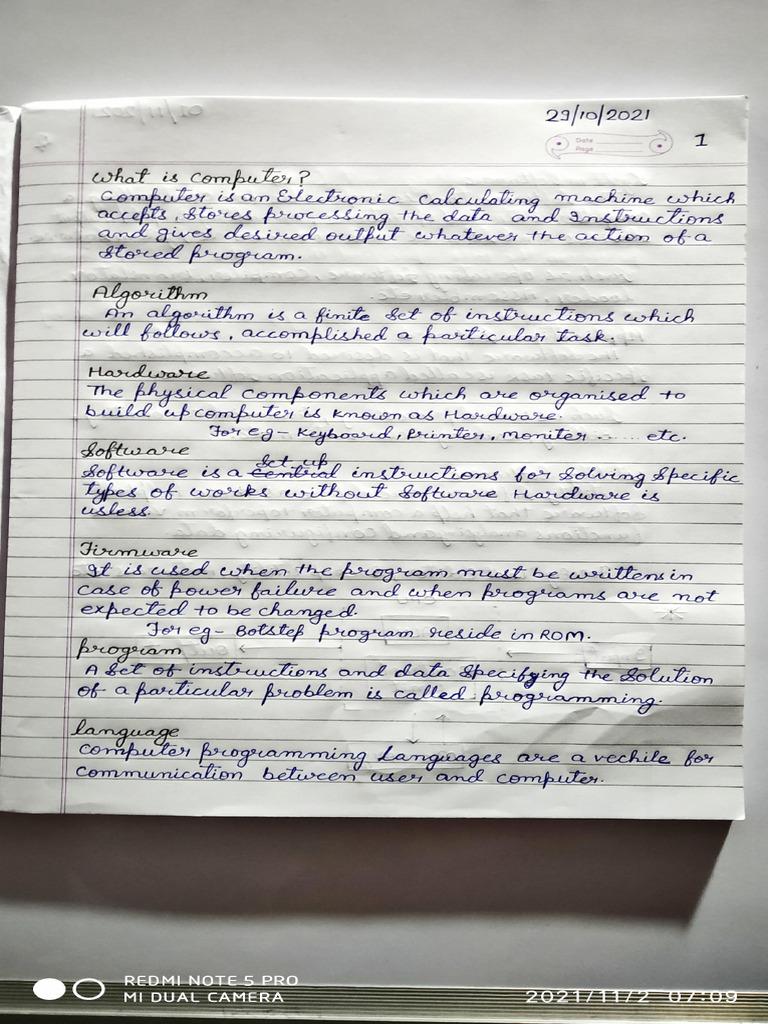 29/10/2021
Date
Page
1
What is computer?
Computer is an Electronic calculating machine which
accepts, stores processing the data and Instructions
and gives desired output whatever the action of a
stored program.
Algorithm
An algorithm is a finite set of instructions which
will follows, accomplished a particular task.
Hardware
The physical components which are organised to
build up computer is known as Hardware.
For eg- Keyboard, Printer, moniter ...... etc.
Software
Set up
Software is a central instructions for Solving Specific
types of works without Software Hardware is
usless.
Firmware
It is used when the program must be writtens in
case of power failure and when programs are not
expected to be changed.
For eg- Botstep program reside in ROM.
program
A Set of instructions and data Specifying the Solution
of a particular problem is called programming.
language
Computer programming Languages are a vechile for
communication between user and computer.
REDMI NOTE 5 PRO
MI DUAL CAMERA
2021/11/2 07:09